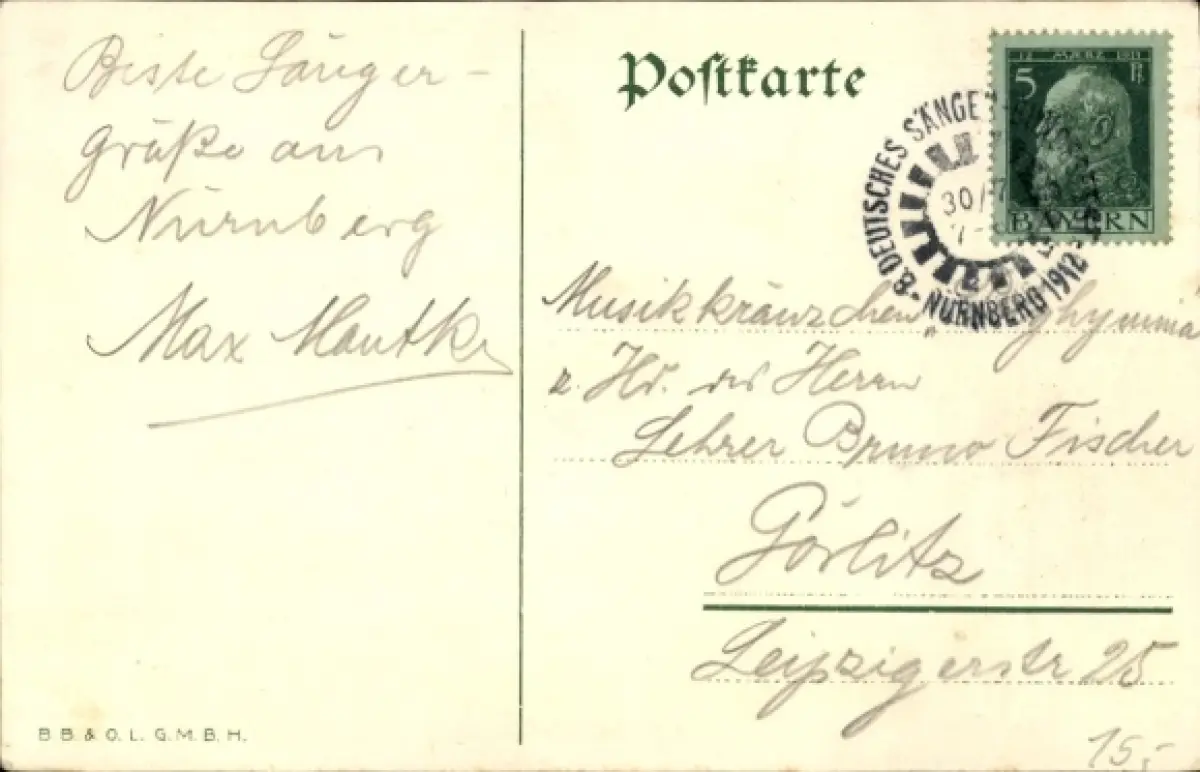 Beste Sänger-
grüße aus
Nürnberg
Max Mantke
B B. & O. L. G. M. B. H.
Postkarte
12 MAERZ 1911
5 Pf
BAYERN
8. DEUTSCHES SÄNGE
30/7
7-8
NÜRNBERG 1912
Musikkränzchen
z. Hd. des Herrn
Lehrer Bruno Fischer
Görlitz
Leipzigerstr 25
15,-